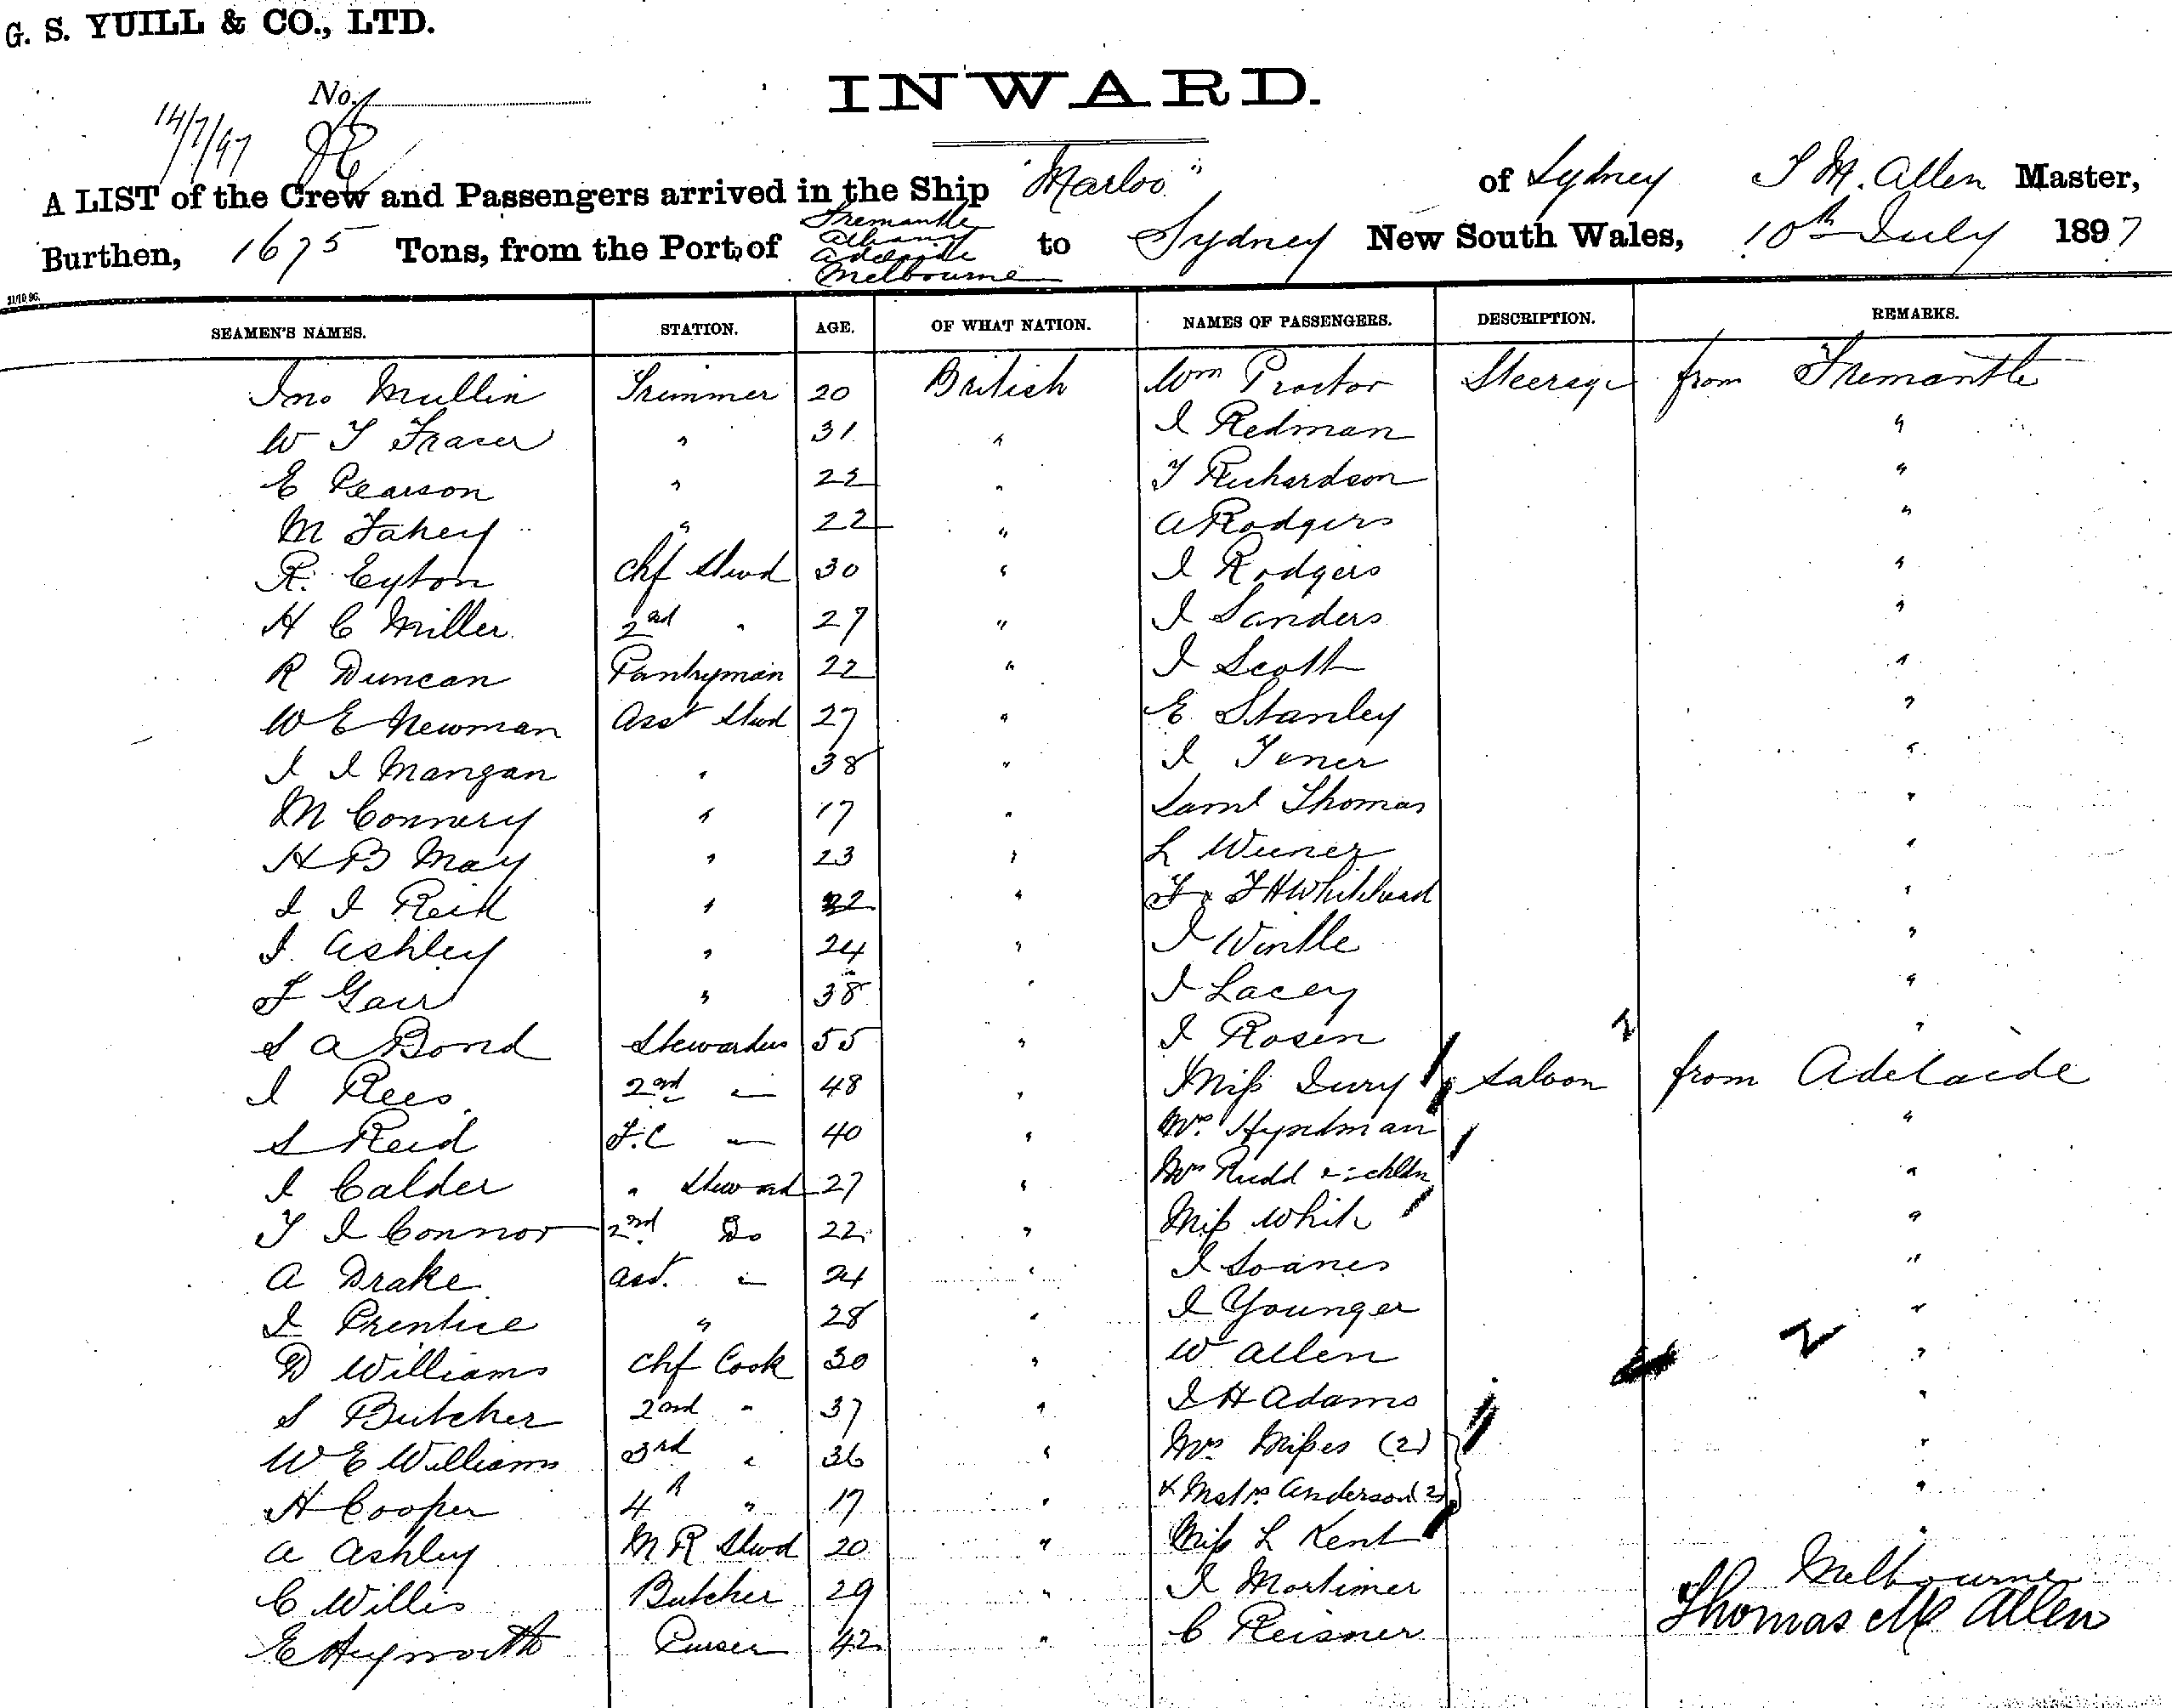 G. S. YUILL & CO., LTD.
No.
INWARD.
14/7/97
A LIST of the Crew and Passengers arrived in the Ship "Marloo" of Sydney T M. Allen Master,
Burthen, 1675 Tons, from the Port of Fremantle Albany Adelaide Melbourne to Sydney New South Wales, 10th July 1897
21/10/96.
SEAMEN'S NAMES. STATION. AGE. OF WHAT NATION. NAMES OF PASSENGERS. DESCRIPTION. REMARKS.
Jno Mullin Trimmer 20 British Wm Proctor Steerage from Fremantle
W T Fraser " 31 " J Redman "
E Pearson " 22 " T Richardson "
M Fahey " 22 " A Rodgers "
R. Eyton Chf Stwd 30 " J Rodgers "
H C Miller 2nd " 27 " J Sanders "
R Duncan Pantryman 22 " J Scott "
W E Newman Asst Stwd 27 " E. Stanley "
J J Mangan " 38 " J Toner "
M Connery " 17 " Saml Thomas "
H B May " 23 " L Weiner "
J J Reid " 22 " T & F H Whitehead "
J. Ashley " 24 " J Wintle "
F Gair " 38 " J Lacey "
S A Bond Stewardess 55 " J Rosen "
J Rees 2nd " 48 " Miss Dury Saloon from Adelaide
S Reid F.C " 40 " Mr. Hyndman "
J Calder " Steward 27 " Mrs Rudd & chldn "
T J Connor 2nd Do 22 " Miss White "
A Drake asst. " 24 " J Soanes "
J Prentice " 28 " J Younger "
D Williams Chf Cook 30 " W Allen "
S Butcher 2nd " 37 " J H Adams "
W E Williams 3rd " 36 " Mrs Misses (2) "
H Cooper 4th " 17 " & Mstrs Anderson (2) "
A Ashley M R Stwd 20 " Miss L Kent "
C Willis Butcher 29 " J Mortimer Melbourne
E Heyworth Purser 42 " C Reisner Thomas M Allen